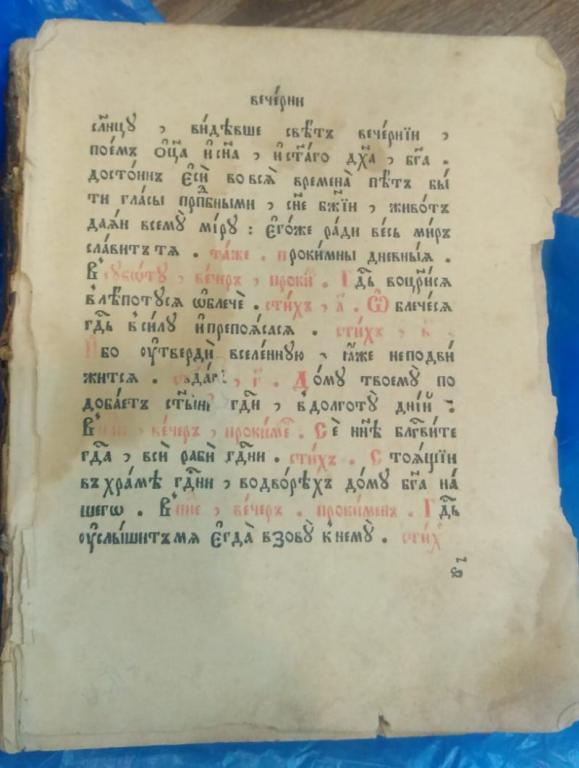 вече́рни
сл҃нцу , ви́дѣвше свѣ́тъ вече́рнїи ,
пое́мъ ѻ҆ц҃а̀ и҆ сн҃а , и҆ ст҃а́го дх҃а , бг҃а .
досто́инъ є҆сѝ во вся̀ времена̀ пѣ́тъ бы́
ти гла́сы прпⷣбными , сн҃е бж҃їи , живо́тъ
дая́и всему̀ мі́ру : є҆го́же ра́ди ве́сь ми́ръ
сла́витъ тя . та́же . прокимны дневныїя .
В суббѡ́ту , ве́черъ , проки́ . Гдⷭ҇ь воцр҃ися
в лѣ́поту ся ѡ҆блечѐ . сти́хъ , а҃ . Ѡ҆блече́ся
гдⷭ҇ь в си́лу и҆ препоя́сася . сти́хъ , в҃ .
И́бо ѹ҆твердѝ вселе́нную , ꙗ҆́же не подви́
жится . г҃ . До́му твоему̀ по
доба́етъ ст҃ы́ни гдⷭ҇и , в долготу̀ дні́й .
В ве́черъ , проки́меⷩ . Сѐ нн҃ѣ блгⷭ҇ви́те
гдⷭ҇а , вси рабѝ гдⷭ҇ни . сти́хъ . Стоя́щїи
въ хра́мѣ гдⷭ҇ни , во дво́рѣхъ до́му бг҃а на́
шегѡ . В ве́черъ . проки́менъ . Гдⷭ҇ь
ѹ҆слы́шитъ мя є҆гда̀ взовѹ̀ к нему̀ . сти́х